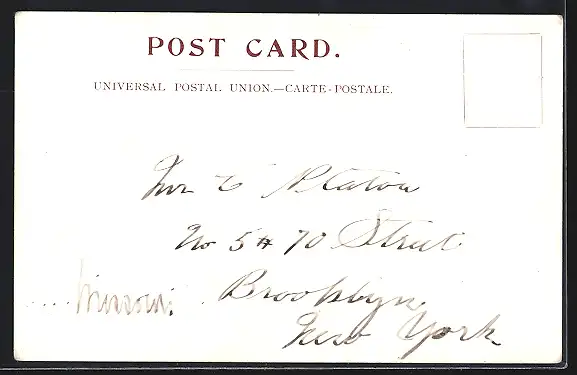 POST CARD.
UNIVERSAL POSTAL UNION.—CARTE-POSTALE.
Mr E Platou
No 5# 70 Street
Brooklyn
Missouri.
New York